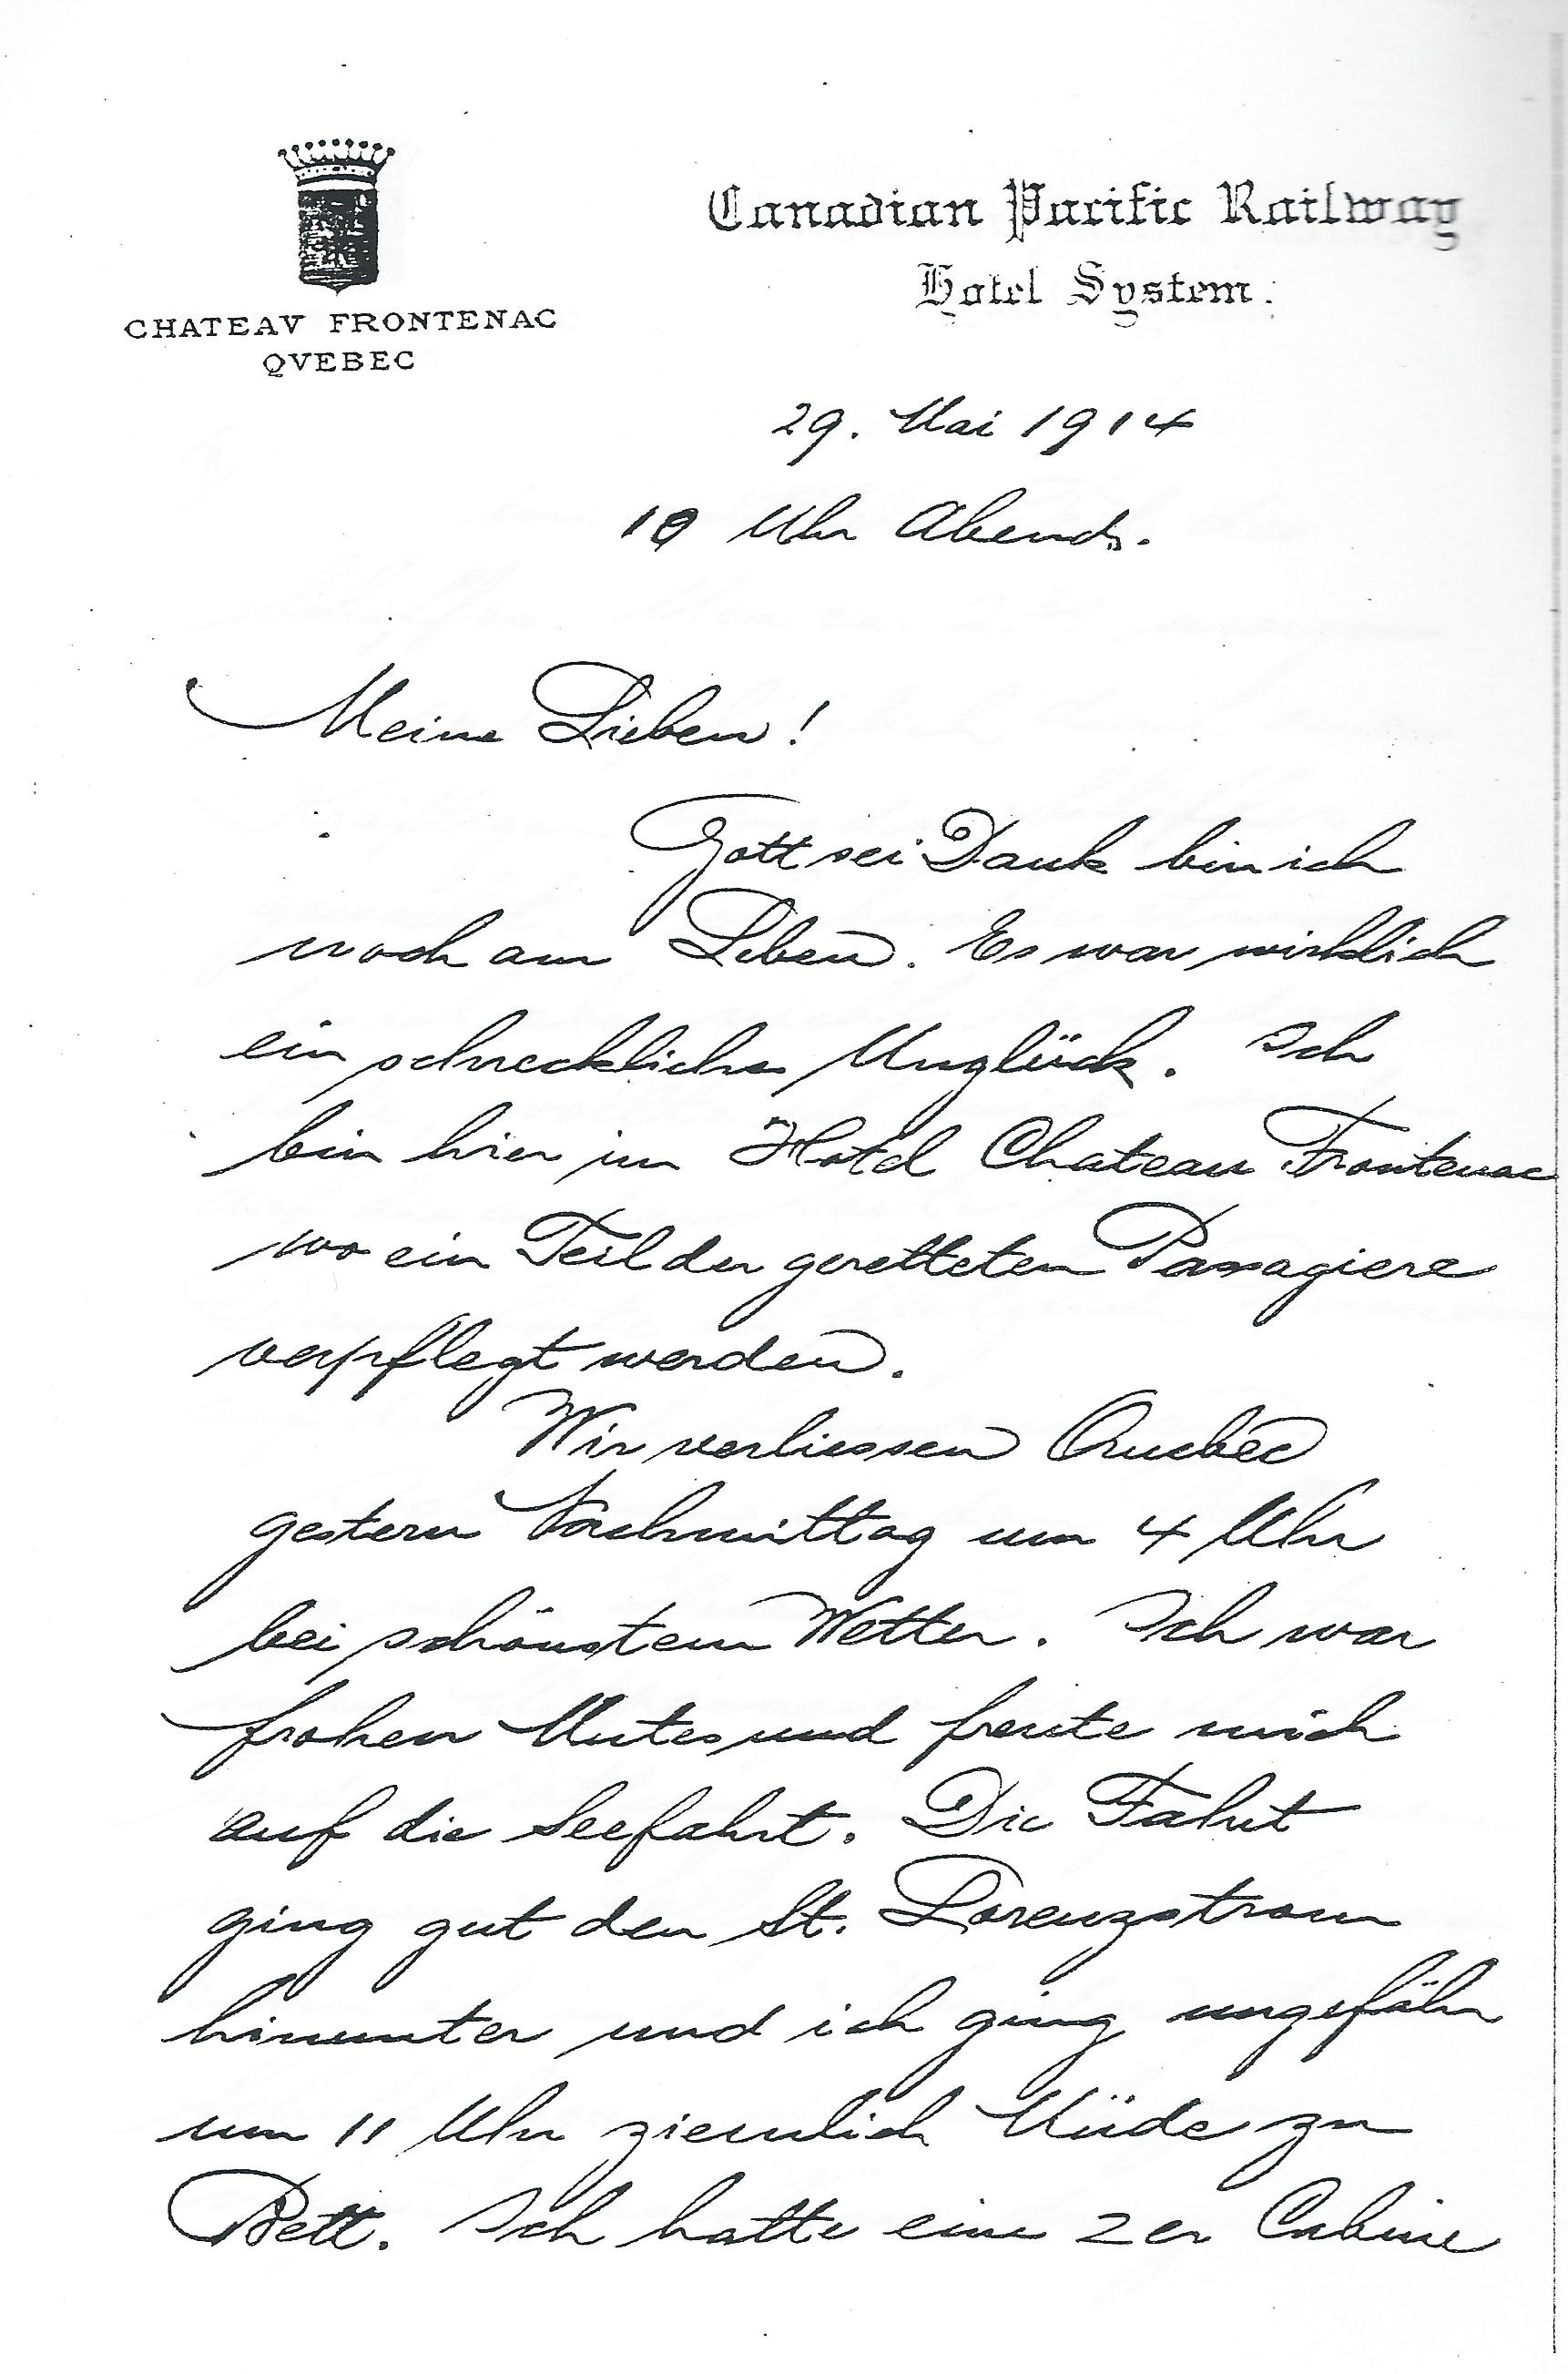 CHATEAV FRONTENAC
QVEBEC
Canadian Pacific Railway
Hotel System.
29. Mai 1914
10 Uhr Abends.
Meine Lieben!
Gott sei Dank bin ich
noch am Leben. Es war wirklich
ein schreckliches Unglück. Ich
bin hier im Hotel Chateau Frontenac
wo ein Teil der geretteten Passagiere
verpflegt werden.
Wir verliessen Quebec
gestern Nachmittag um 4 Uhr
bei schönstem Wetter. Ich war
frohen Mutes und freute mich
auf die Seefahrt. Die Fahrt
ging gut den St. Lorenzstrom
hinunter und ich ging ungefähr
um 11 Uhr ziemlich Müde zu
Bett. Ich hatte eine 2er Cabine